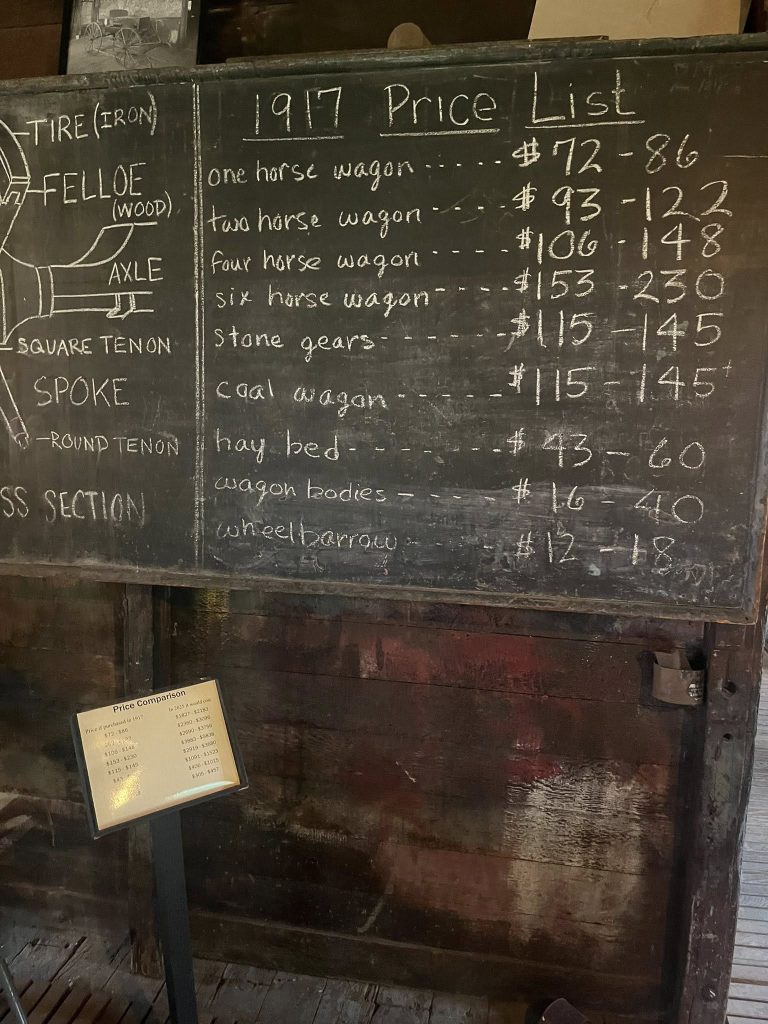 TIRE (IRON)
FELLOE
(WOOD)
AXLE
SQUARE TENON
SPOKE
ROUND TENON
SS SECTION
1917 Price List
one horse wagon ----- $72 - 86
two horse wagon ---- $93 - 122
four horse wagon ---- $106 - 148
six horse wagon ---- $153 - 230
stone gears ------- $115 - 145
coal wagon ----- $115 - 145+
hay bed ------- $43 - 60
wagon bodies ----- $16 - 40
wheelbarrow ---- $12 - 18
Price Comparison
Price if purchased in 1917 In 2025 it would cost
$72 - $86 $1827 - $2183
$106 - $148
$153 - $230
$115 - $145 $2919 - $3680
$1091 - $1523
$406 - $1015
$305 - $457